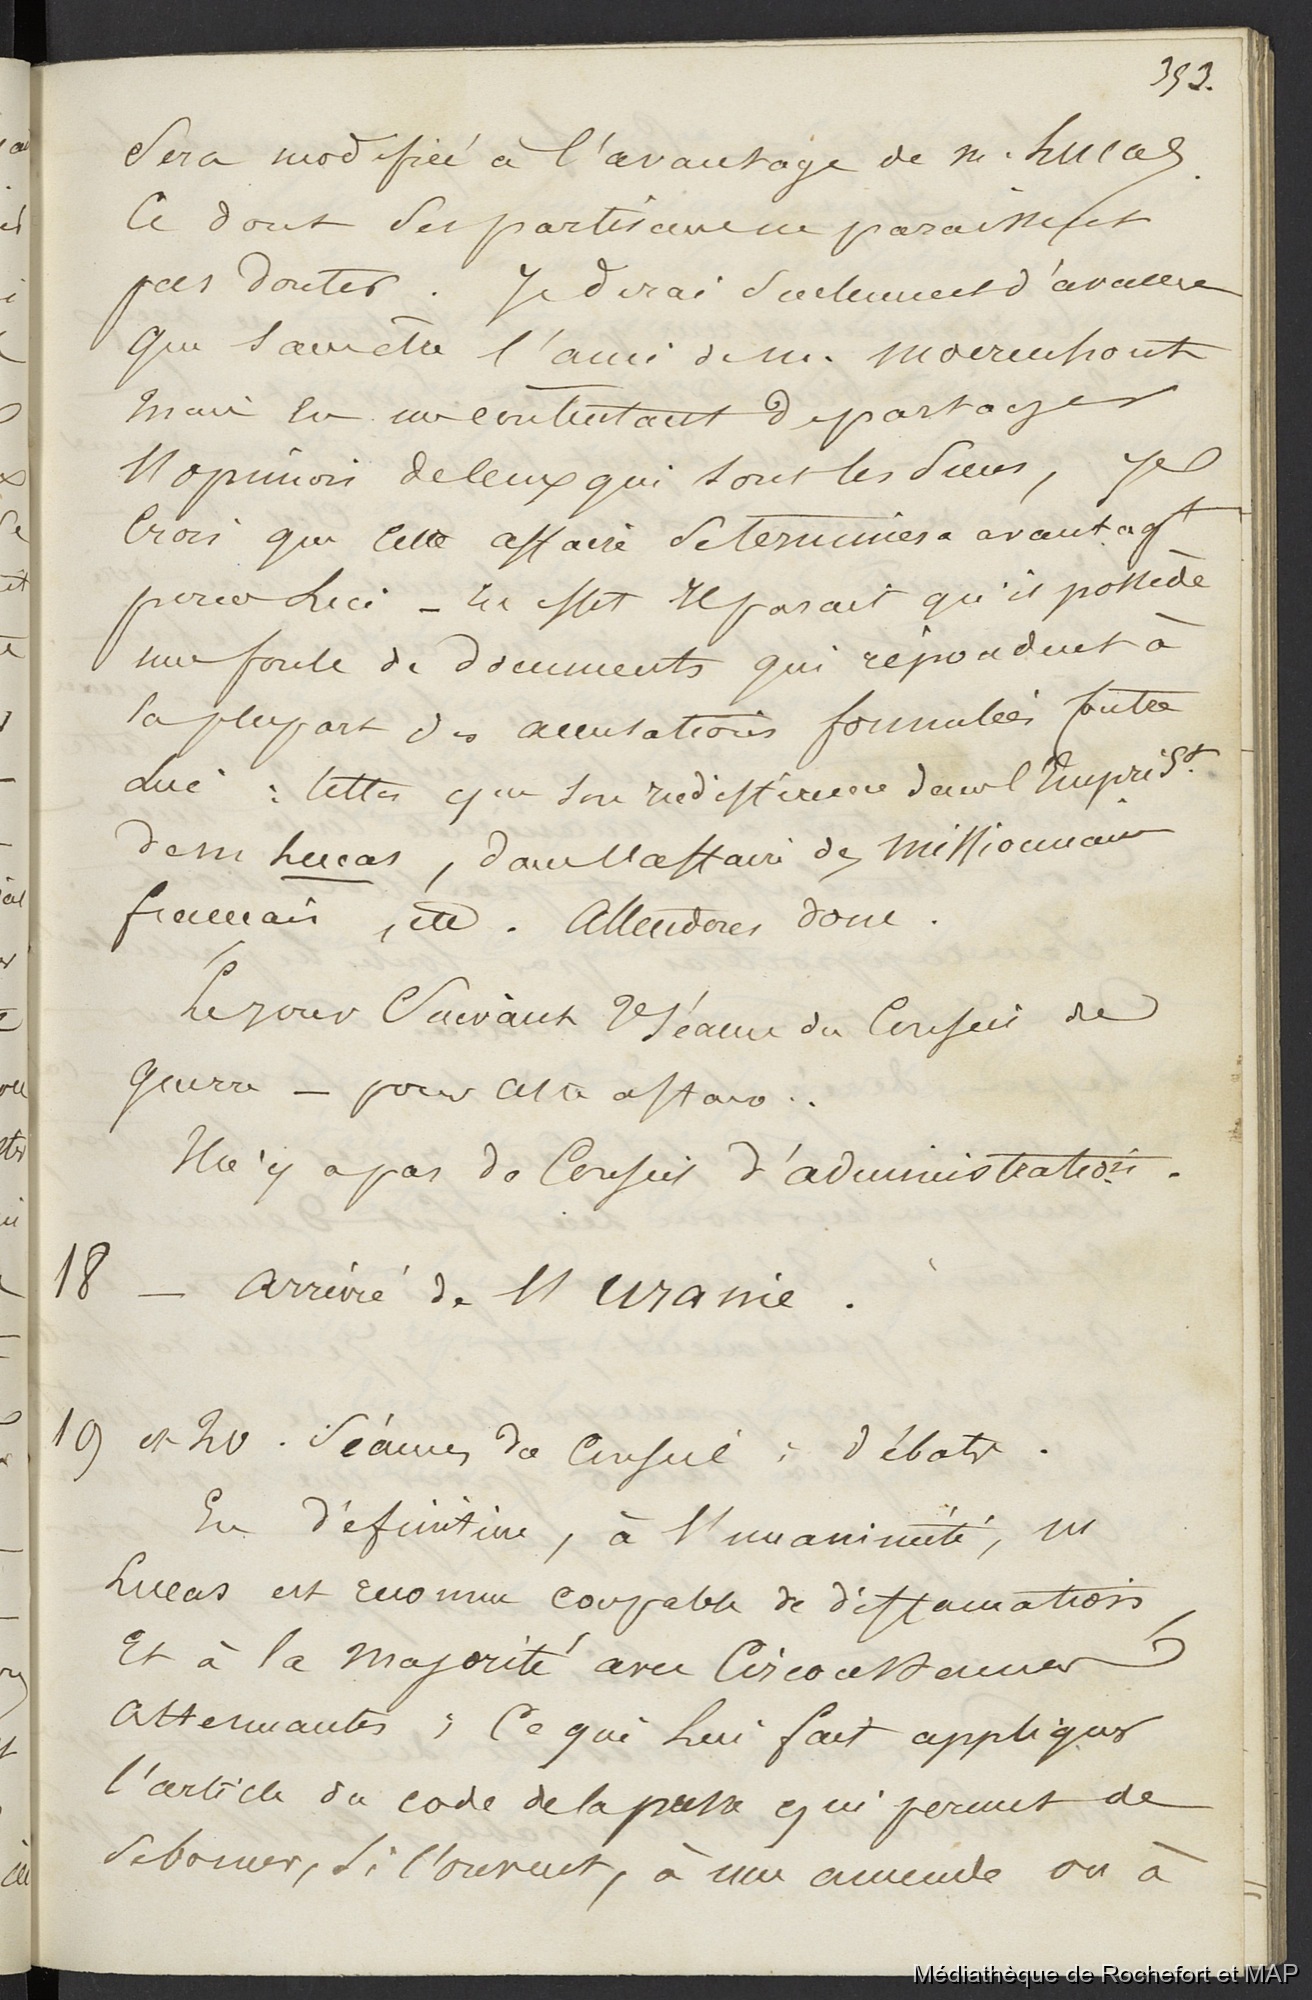 393.
Sera modifiée à l'avantage de M. Lucas.
Ce dont ses partisans ne paraissent
pas douter. Je dirai seulement d'avance
que sans être l'ami de M. Moerenhout
mais en me contentant de partager
l'opinion de ceux qui sont les siens, je
crois que cette affaire se terminera avantagt
pour lui — En effet Il parait qu'il possède
une foule de documents qui répondent à
la plupart des accusations formulées contre
lui : telles que son indifférence dans l'Emprist.
de M Lucas, dans l'affaire des missionnaires
français, etc. Attendons donc.
Le jour suivant 2e séance du Conseil de
guerre — pour cette affaire..
Il n'y a pas de Conseil d'administration.
18 — Arrivée de l'Uranie.
19 et 20. Séances du Conseil ; débats.
En définitive, à l'unanimité, M
Lucas est reconnu coupable de diffamation,
Et à la majorité avec Circonstances
Attenuantes ; Ce qui lui fait appliquer
l'article du code de la presse qui permet de
se borner, si l'on veut, à une amende ou à
Médiathèque de Rochefort et MAP